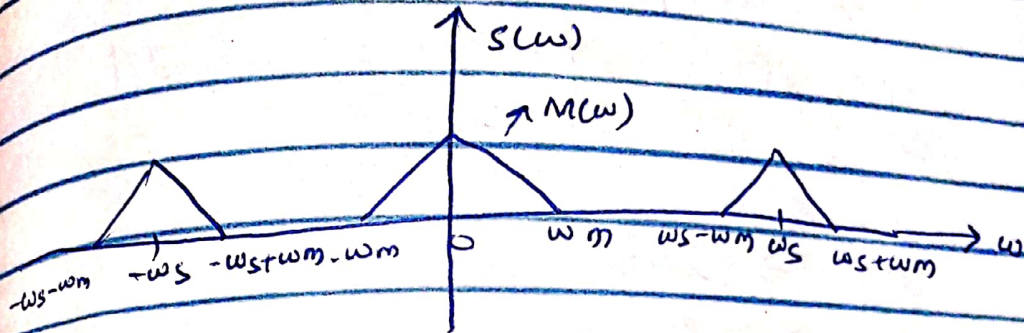 S(ω)
M(ω)
-ωs-ωm -ωs -ωs+ωm -ωm 0 ωm ωs-ωm ωs ωs+ωm ω